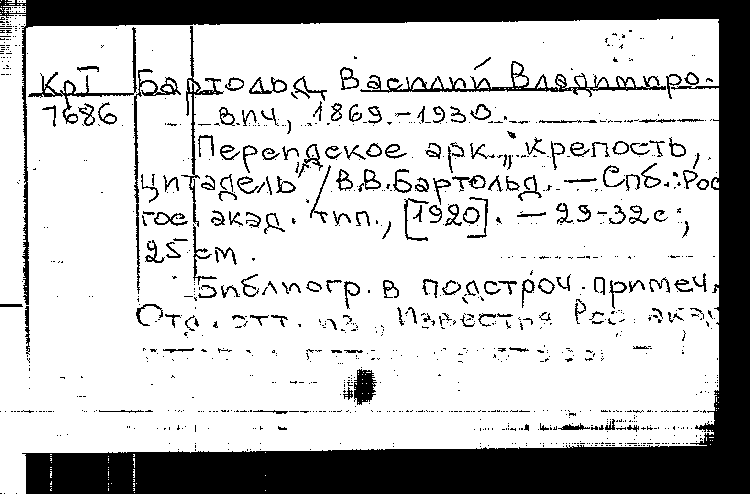 КрТ Бартольд, Василий Владимиро-
7686 вич, 1869-1930.
Персидское арк „крепость,
цитадель" / В.В.Бартольд. — Спб.: Рос
гос. акад. тип., [1920]. — 29-32с.;
25 см.
Библиогр. в подстроч. примеч.
Отд. отт. из „Известия Рос. акад